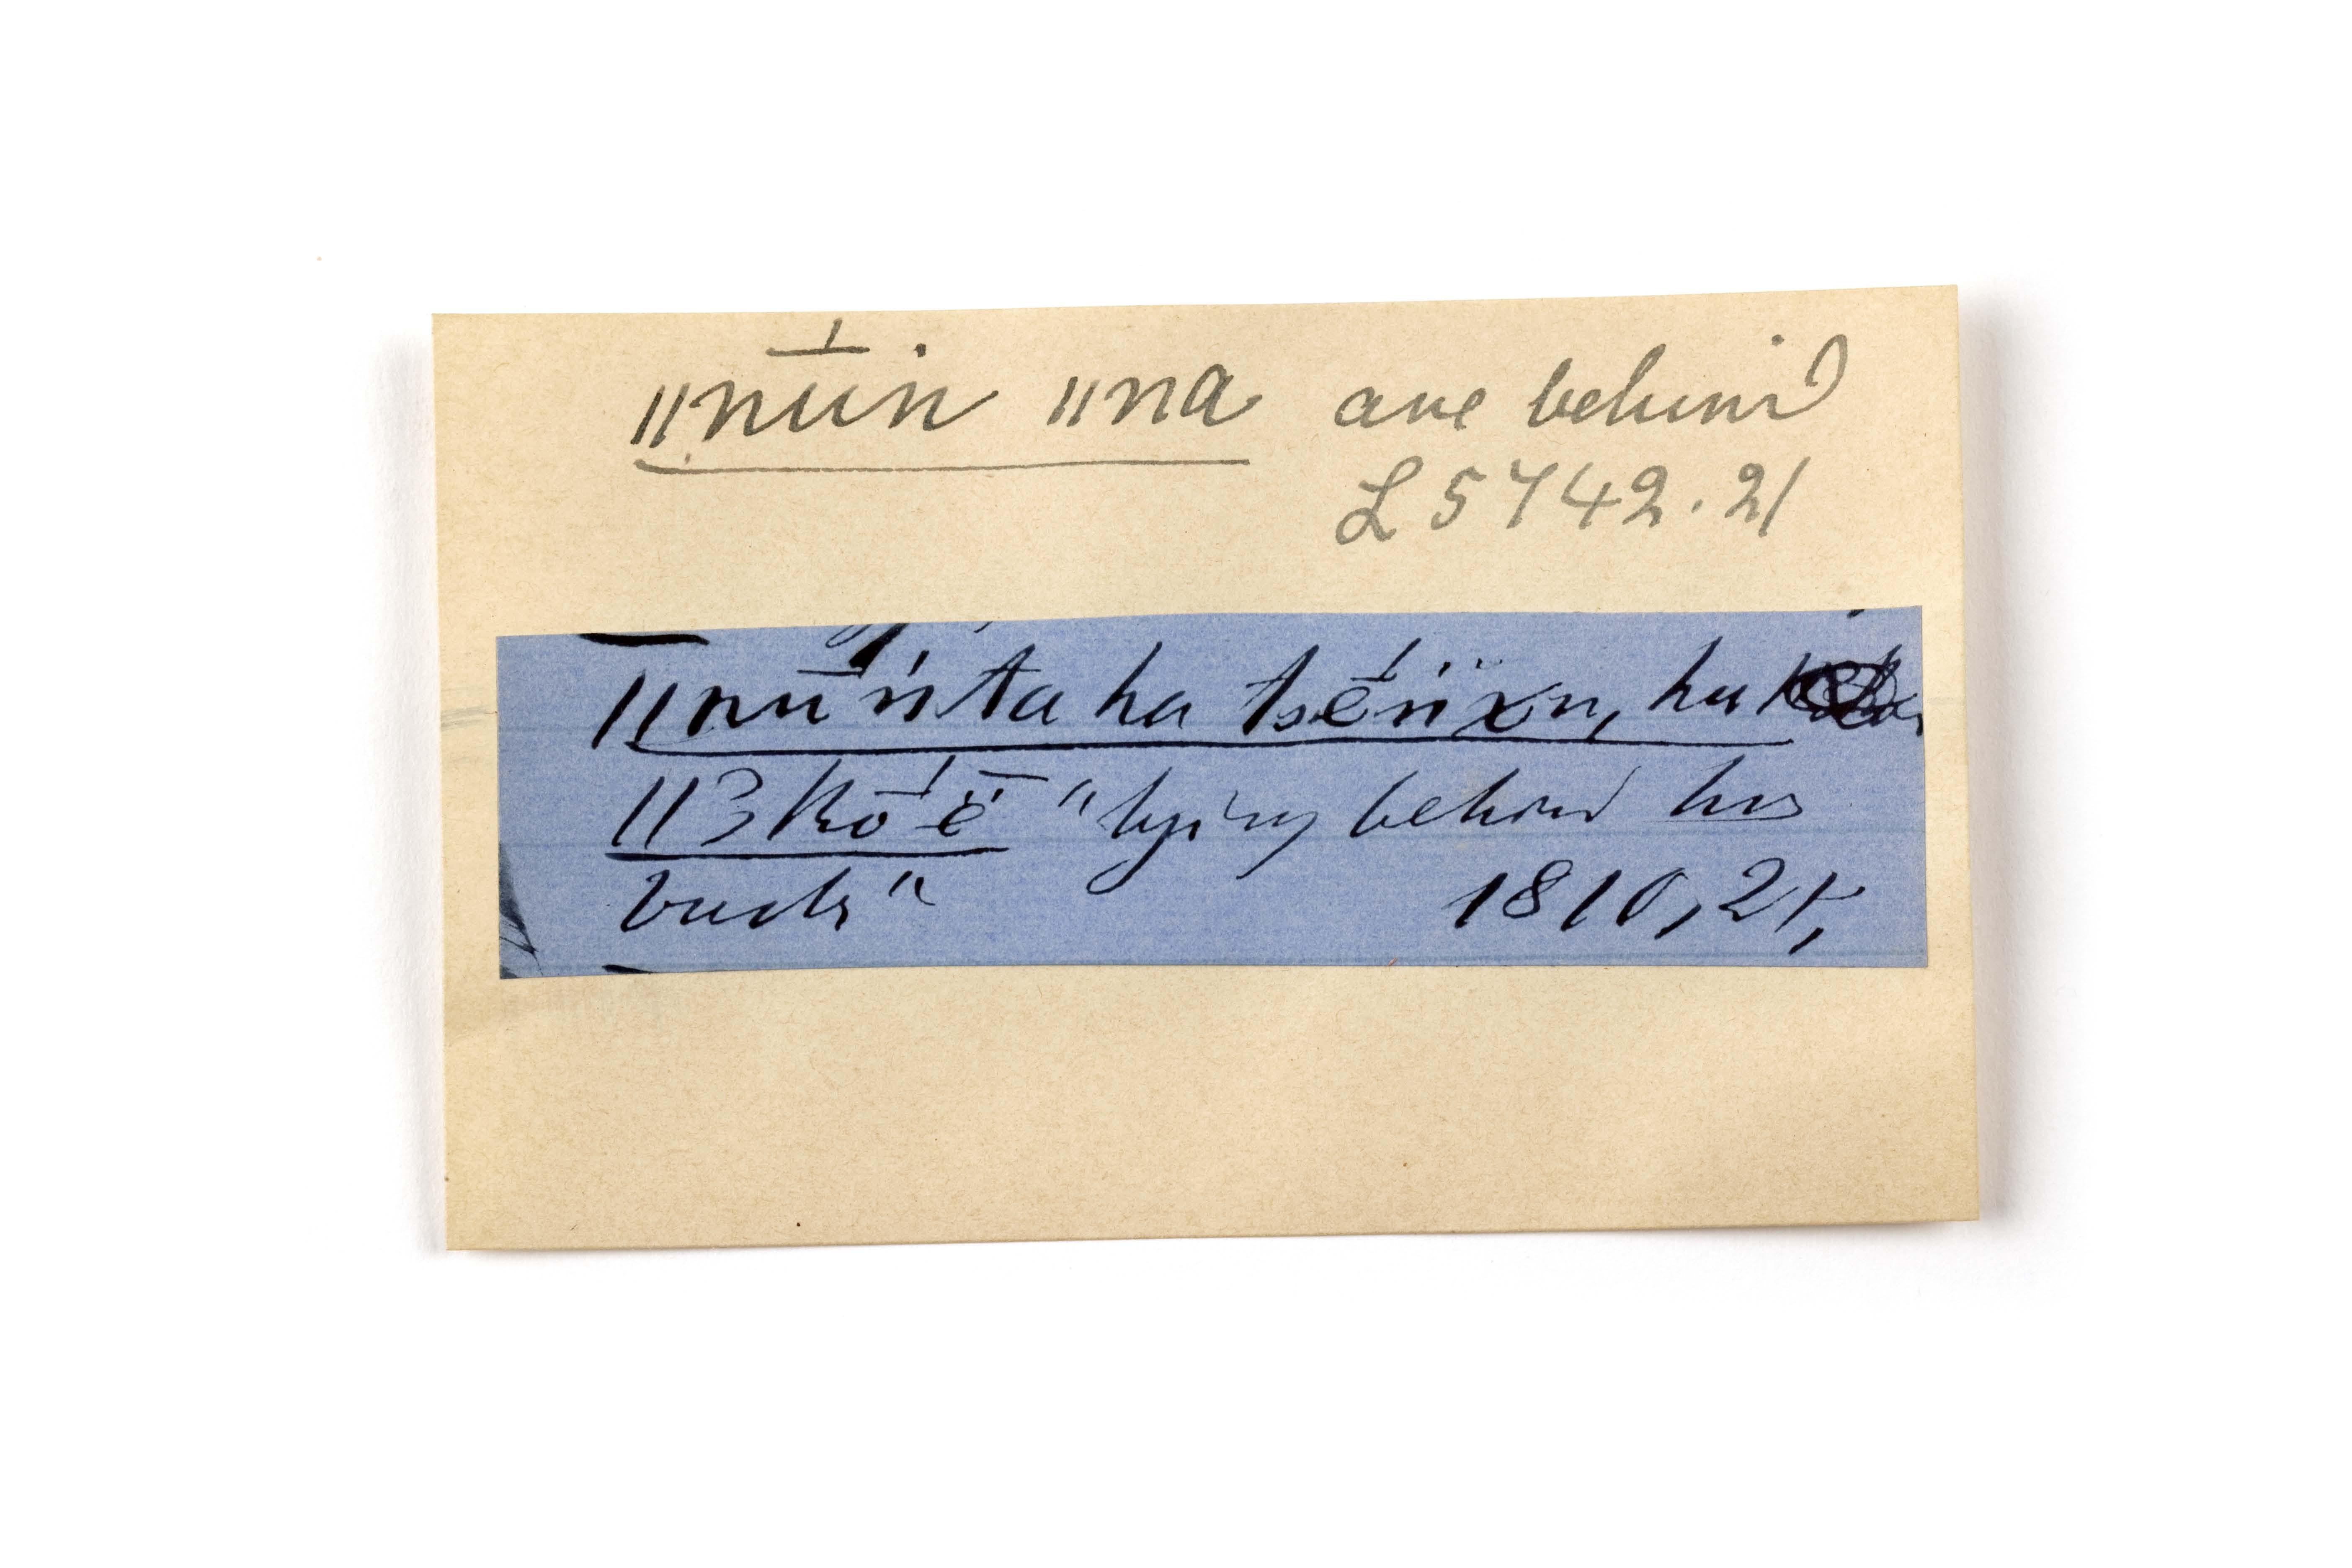 ǁnu̱̅ṅ ǁna are behind
L 5742.21
ǁnūṅta ha tsē̍ṅxu, ha
ǁ3kō̍ë̄ "lying behind his
back" 1810, 21,